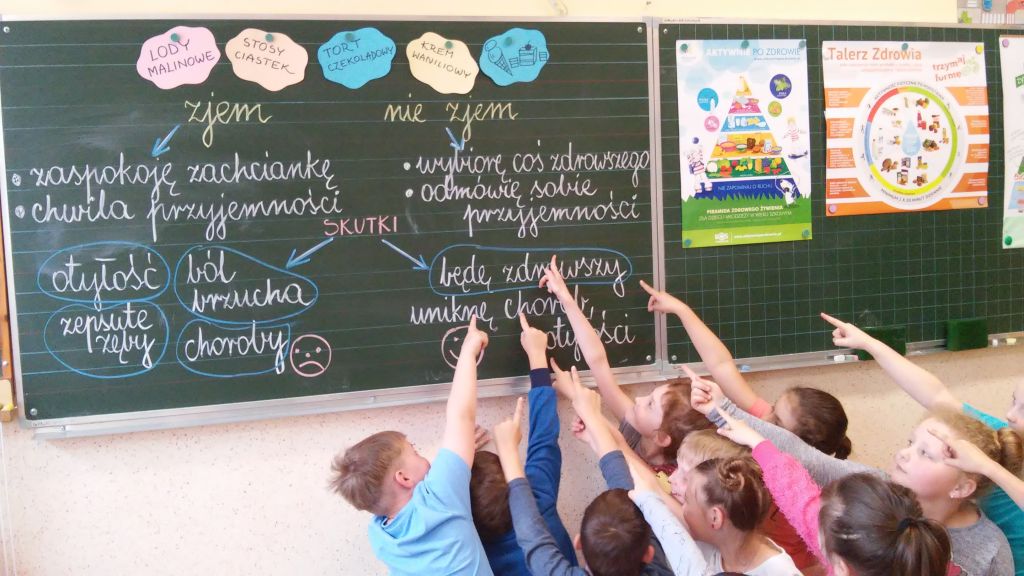 LODY
MALINOWE
STOSY
CIASTEK
TORT
CZEKOLADOWY
KREM
WANILIOWY
zjem
nie zjem
• zaspokoję zachciankę
• chwila przyjemności
• wybiorę coś zdrowszego
• odmówię sobie
przyjemności
SKUTKI
otyłość
ból
brzucha
zepsute
zęby
choroby
będę zdrowszy
uniknę chorób
otyłości
AKTYWNIE PO ZDROWIE
NIE ZAPOMINAJ O RUCHU
PIRAMIDA ZDROWEGO ŻYWIENIA
DLA DZIECI I MŁODZIEŻY W WIEKU SZKOLNYM
Talerz Zdrowia
trzymaj
formę